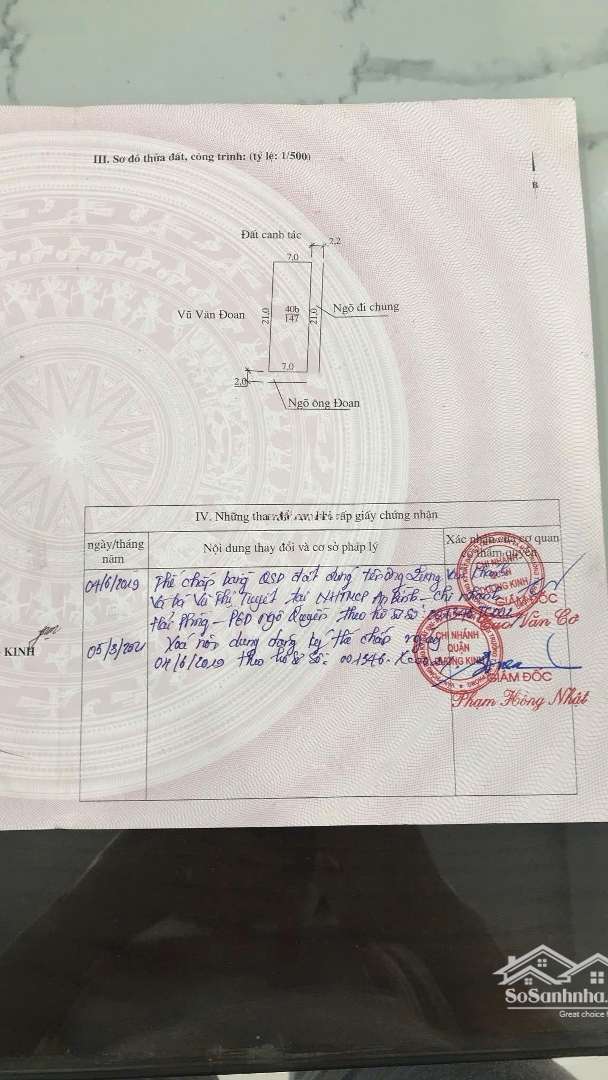 III. Sơ đồ thửa đất, công trình: (tỷ lệ: 1/500)
B
Đất canh tác
2,2
7,0
Vũ Văn Đoan
21,0
40b
147
21,0
Ngõ đi chung
7,0
2,0
Ngõ ông Đoan
IV. Những thay đổi sau khi cấp giấy chứng nhận
ngày/tháng năm
Nội dung thay đổi và cơ sở pháp lý
Xác nhận của cơ quan có thẩm quyền
04/6/2019
Thế chấp bằng QSD đất đứng tên ông Lương Văn
Và bà Vũ Thị Tuyết tại NHTMCP An Bình - chi nhánh
Hải Phòng - PGD Ngô Quyền theo hồ sơ số
CHI NHÁNH
QUẬN
DƯƠNG KINH
GIÁM ĐỐC
Văn Cơ
KINH
05/3/2021
Xoá nội dung đăng ký thế chấp ngày
04/6/2019 theo hồ sơ số: 001346.
CHI NHÁNH
QUẬN
DƯƠNG KINH
GIÁM ĐỐC
Phạm Hồng Nhật
SoSanhnha
Great choice